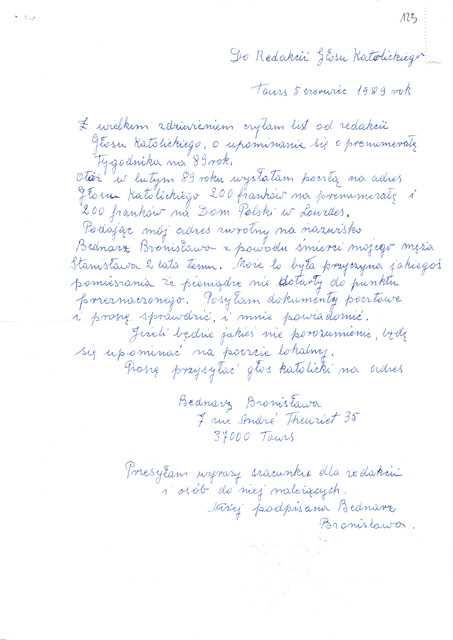 123
Do Redakcii Głosu Katolickiego
Tours 5 czerwiec 1989 rok
Z wielkim zdziwieniem czytam list od redakcii
Głosu Katolickiego, o upominanie się o prenumeratę
Tygodnika na 89 rok.
Otóż w lutym 89 roku wysłałam pocztą na adres
Głosu Katolickiego 200 franków na prenumeratę i
200 franków na Dom Polski w Lourdes.
Podając mój adres zwrotny na nazwisko
Bednarz Bronisława z powodu śmierci mojego męża
Stanisława 2 lata temu. Może to była przyczyna jakiegoś
pomieszania że pieniądze nie dotarły do punktu
przeznaczonego. Posyłam dokumenty pocztowe
i proszę sprawdzić, i mnie powiadomić.
Jezeli będzie jakieś nie porozumienie, będę
się upominać na poczcie lokalnej.
Proszę przysyłać głos katolicki na adres
Bednarz Bronisława
7 rue André Theuriet 35
37000 Tours
Przesyłam wyrazy szacunku dla redakcii
i osób do niej należących.
Niżej podpisana Bednarz
Bronisława.